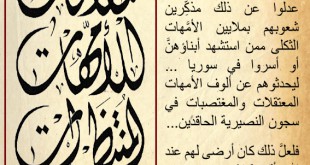 للأمّهات
المنتظرات
عدلوا عن ذلك مذكّرين
شعوبهم بملايين الأمّهات
الثكلى ممن استشهد أبناؤهنَّ
أو أسروا في سوريا ...
ليحدثوهم عن ألوف الأمهات
المعتقلات والمغتصبات في
سجون النصيرية الحاقدين...
فلعلَّ ذلك كان أرضى لهم عند